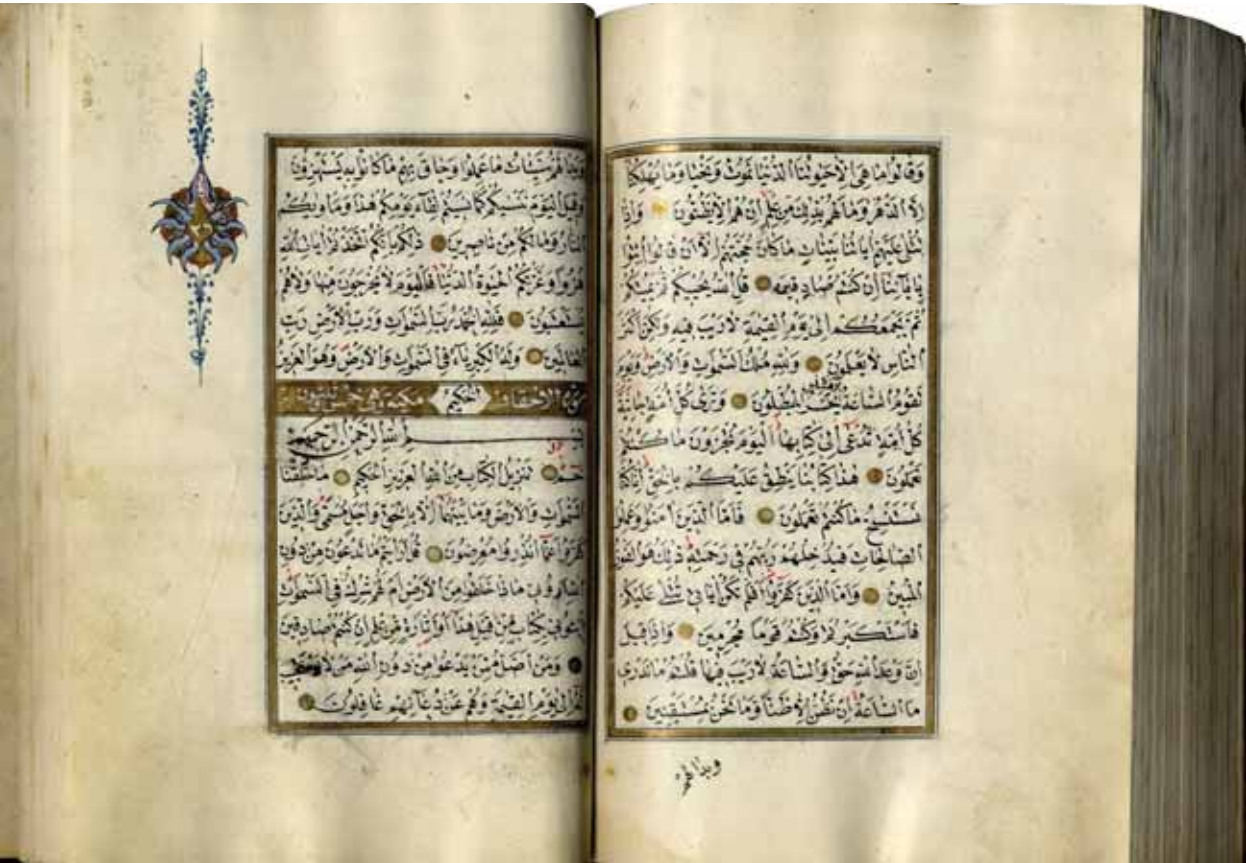 وَقَالُوا مَا هِيَ إِلَّا حَيَوتُنَا الدُّنْيَا نَمُوتُ وَنَحْيَا وَمَا يُهْلِكُنَا
إِلَّا الدَّهْرُ وَمَا لَهُمْ بِذَلِكَ مِنْ عِلْمٍ إِنْ هُمْ إِلَّا يَظُنُّونَ وَإِذَا
تُتْلَى عَلَيْهِمْ آيَاتُنَا بَيِّنَاتٍ مَا كَانَ حُجَّتَهُمْ إِلَّا أَنْ قَالُوا ائْتُوا
بِآبَائِنَا إِنْ كُنْتُمْ صَادِقِينَ قُلِ اللَّهُ يُحْيِيكُمْ ثُمَّ يُمِيتُكُمْ
ثُمَّ يَجْمَعُكُمْ إِلَى يَوْمِ الْقِيمَةِ لَا رَيْبَ فِيهِ وَلَكِنَّ أَكْثَرَ
النَّاسِ لَا يَعْلَمُونَ وَلِلَّهِ مُلْكُ السَّمَوَاتِ وَالْأَرْضِ وَيَوْمَ
تَقُومُ السَّاعَةُ يَوْمَئِذٍ يَخْسَرُ الْمُبْطِلُونَ وَتَرَى كُلَّ أُمَّةٍ جَاثِيَةً
كُلُّ أُمَّةٍ تُدْعَى إِلَى كِتَابِهَا الْيَوْمَ تُجْزَوْنَ مَا كُنْتُمْ
تَعْمَلُونَ هَذَا كِتَابُنَا يَنْطِقُ عَلَيْكُمْ بِالْحَقِّ إِنَّا كُنَّا
نَسْتَنْسِخُ مَا كُنْتُمْ تَعْمَلُونَ فَأَمَّا الَّذِينَ آمَنُوا وَعَمِلُوا
الصَّالِحَاتِ فَيُدْخِلُهُمْ رَبُّهُمْ فِي رَحْمَتِهِ ذَلِكَ هُوَ الْفَوْزُ
الْمُبِينُ وَأَمَّا الَّذِينَ كَفَرُوا أَفَلَمْ تَكُنْ آيَاتِي تُتْلَى عَلَيْكُمْ
فَاسْتَكْبَرْتُمْ وَكُنْتُمْ قَوْمًا مُجْرِمِينَ وَإِذَا قِيلَ
إِنَّ وَعْدَ اللَّهِ حَقٌّ وَالسَّاعَةُ لَا رَيْبَ فِيهَا قُلْتُمْ مَا نَدْرِي
مَا السَّاعَةُ إِنْ نَظُنُّ إِلَّا ظَنًّا وَمَا نَحْنُ بِمُسْتَيْقِنِينَ
وبدا لهم
وَبَدَا لَهُمْ سَيِّئَاتُ مَا عَمِلُوا وَحَاقَ بِهِمْ مَا كَانُوا بِهِ يَسْتَهْزِؤُنَ
وَقِيلَ الْيَوْمَ نَنْسَيكُمْ كَمَا نَسِيتُمْ لِقَاءَ يَوْمِكُمْ هَذَا وَمَأْوَيكُمُ
النَّارُ وَمَا لَكُمْ مِنْ نَاصِرِينَ ذَلِكُمْ بِأَنَّكُمُ اتَّخَذْتُمْ آيَاتِ اللَّهِ
هُزُوًا وَغَرَّتْكُمُ الْحَيَوةُ الدُّنْيَا فَالْيَوْمَ لَا يُخْرَجُونَ مِنْهَا وَلَا هُمْ
يُسْتَعْتَبُونَ فَلِلَّهِ الْحَمْدُ رَبِّ السَّمَوَاتِ وَرَبِّ الْأَرْضِ رَبِّ
الْعَالَمِينَ وَلَهُ الْكِبْرِيَاءُ فِي السَّمَوَاتِ وَالْأَرْضِ وَهُوَ الْعَزِيزُ
سورة الاحقاف الْحَكِيمُ مكية وهي خمس وثلثون
بِسْمِ اللَّهِ الرَّحْمَنِ الرَّحِيمِ
حم تَنْزِيلُ الْكِتَابِ مِنَ اللَّهِ الْعَزِيزِ الْحَكِيمِ مَا خَلَقْنَا
السَّمَوَاتِ وَالْأَرْضَ وَمَا بَيْنَهُمَا إِلَّا بِالْحَقِّ وَأَجَلٍ مُسَمًّى وَالَّذِينَ
كَفَرُوا عَمَّا أُنْذِرُوا مُعْرِضُونَ قُلْ أَرَأَيْتُمْ مَا تَدْعُونَ مِنْ دُونِ
اللَّهِ أَرُونِي مَاذَا خَلَقُوا مِنَ الْأَرْضِ أَمْ لَهُمْ شِرْكٌ فِي السَّمَوَاتِ
ائْتُونِي بِكِتَابٍ مِنْ قَبْلِ هَذَا أَوْ أَثَارَةٍ مِنْ عِلْمٍ إِنْ كُنْتُمْ صَادِقِينَ
وَمَنْ أَضَلُّ مِمَّنْ يَدْعُو مِنْ دُونِ اللَّهِ مَنْ لَا يَسْتَجِيبُ
لَهُ إِلَى يَوْمِ الْقِيمَةِ وَهُمْ عَنْ دُعَائِهِمْ غَافِلُونَ